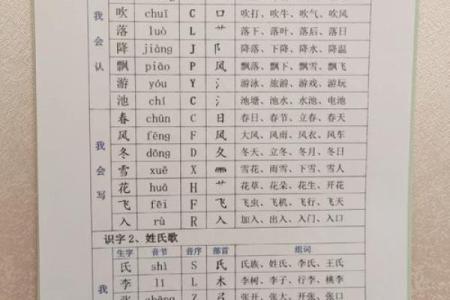 我会认
吹 chuī C 口 吹打、吹牛、吹气、吹风
落 luò L 艹 落下、落叶、落后、落日
降 jiàng J 阝 降落、下降、降水、降温
飘 piāo P 风 飘落、飘下、飘雪、飘飞
游 yóu Y 氵 游泳、旅游、游戏、游玩
池 chí C 氵 池塘、池水、水池、电池
我会写
春 chūn C 日 春日、春节、立春、春天
风 fēng F 风 大风、风雨、风衣、风车
冬 dōng D 夂 冬天、立冬、冬月、冬日
雪 xuě X ⻗ 雪花、雨雪、下雪、雪人
花 huā H 艹 花草、花朵、花生、开花
飞 fēi F 飞 飞虫、飞机、飞行、飞天
入 rù R 入 加入、出入、入门、入口
识字 2、姓氏歌
生字 音节 音序 部首 组词
我
氏 shì S 氏 氏族、姓氏、李氏、王氏
李 lǐ L 木 李树、李子、行李、桃李
张 zhāng Z 弓 张开、张大、开张、张口